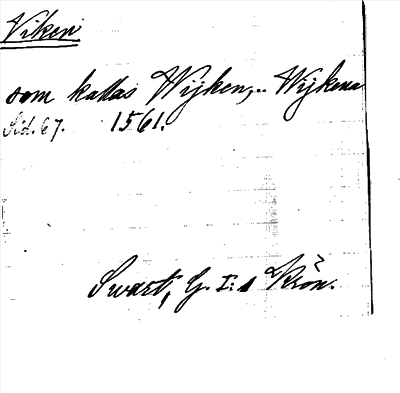 Viken
som kallas Wijken, .. Wijkena
Sid. 67. 1561.
Swart, G. I:s Krön.